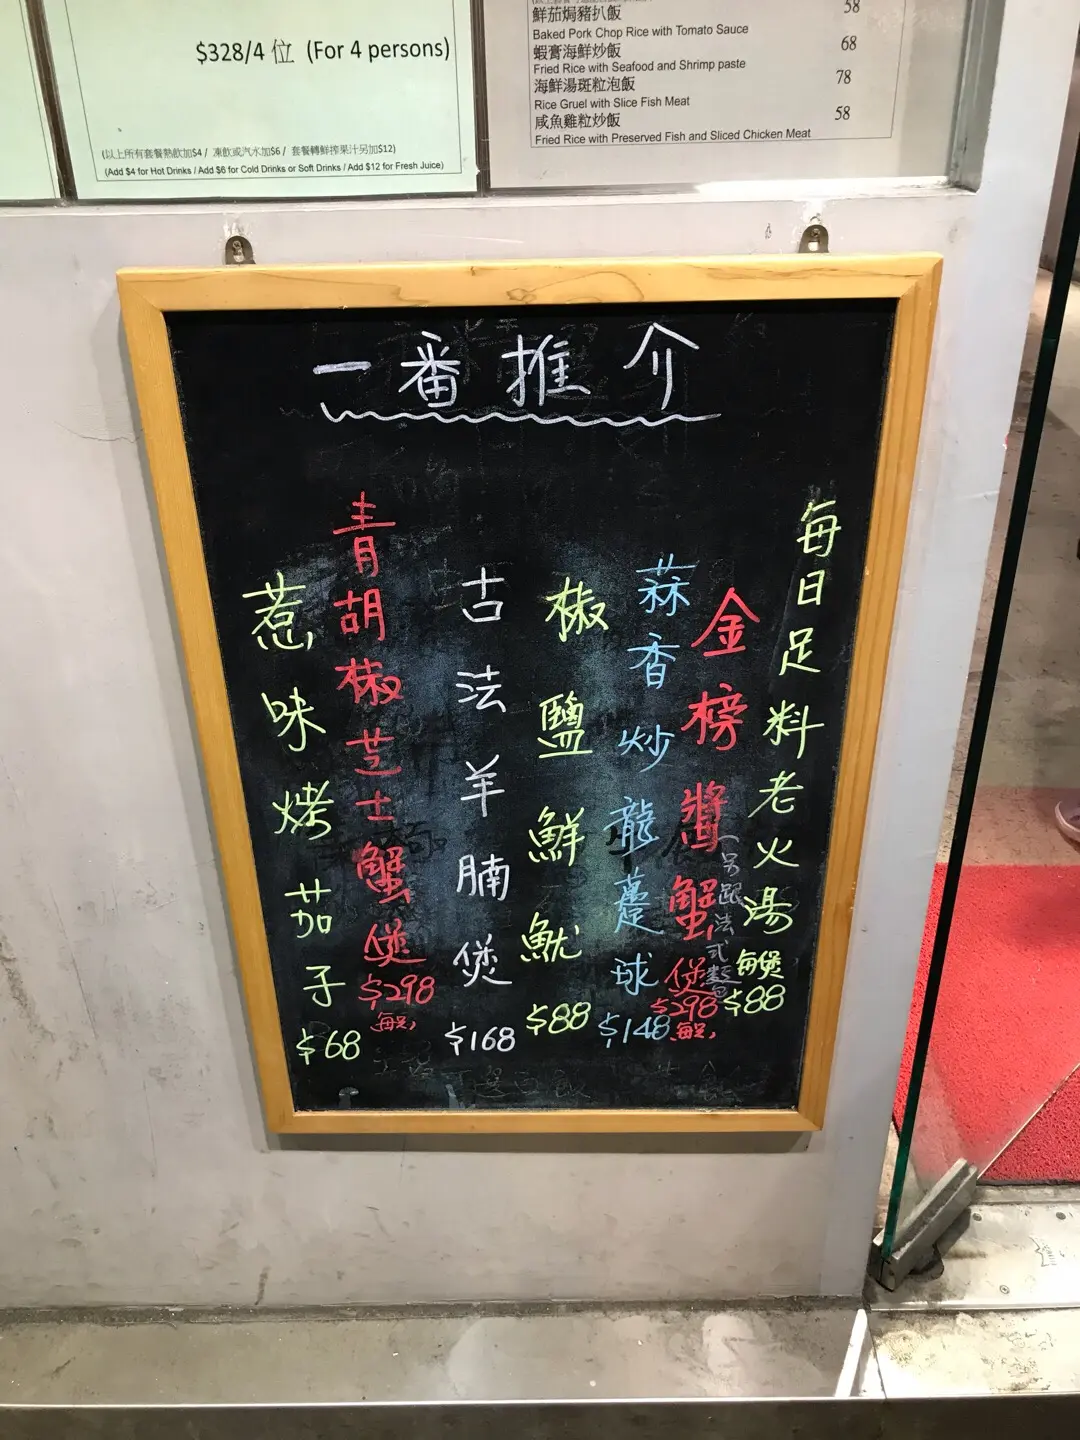 $328/4 位 (For 4 persons)
(以上所有套餐熱飲加$4 / 凍飲或汽水加$6 / 套餐轉鮮搾果汁另加$12)
(Add $4 for Hot Drinks / Add $6 for Cold Drinks or Soft Drinks / Add $12 for Fresh Juice)
鮮茄焗豬扒飯 58
Baked Pork Chop Rice with Tomato Sauce
蝦膏海鮮炒飯 68
Fried Rice with Seafood and Shrimp paste
海鮮湯斑粒泡飯 78
Rice Gruel with Slice Fish Meat
咸魚雞粒炒飯 58
Fried Rice with Preserved Fish and Sliced Chicken Meat
一番推介
每日足料老火湯
每煲
$88
金榜醬蟹煲
(另跟法式麵包
$298
每足
蒜香炒龍躉球
$148
椒鹽鮮魷
$88
古法羊腩煲
$168
青胡椒芝士蟹煲
$298
每足
惹味烤茄子
$68